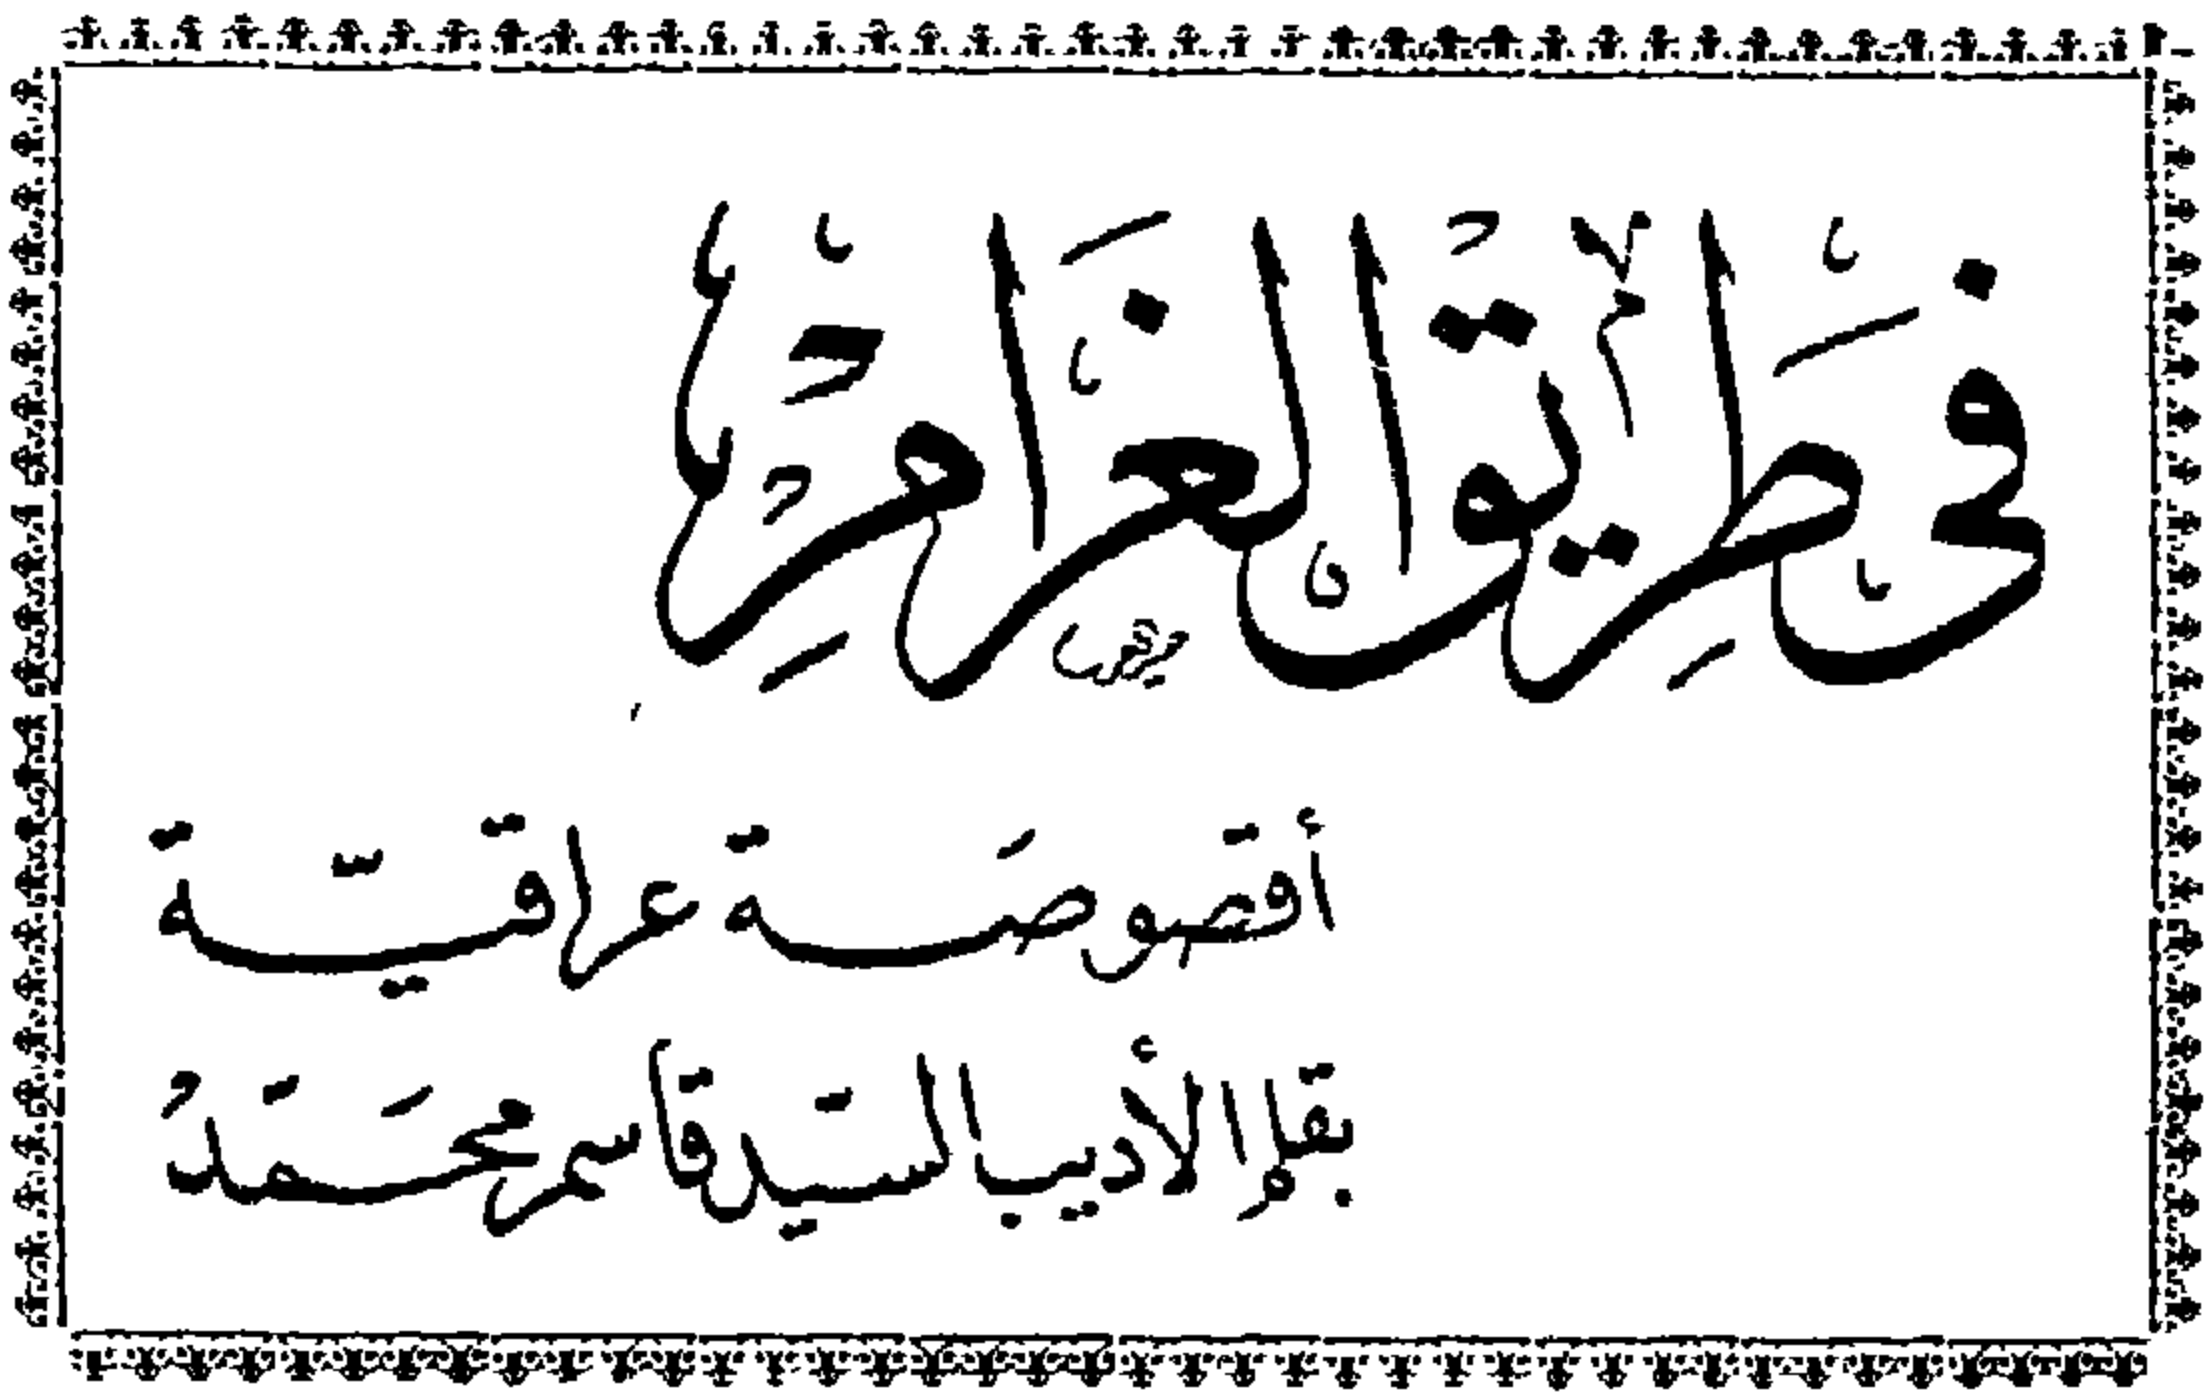 فى طريق الغرام
أقصوصة عراقية
بقلم الأديب السيد قاسم محمد